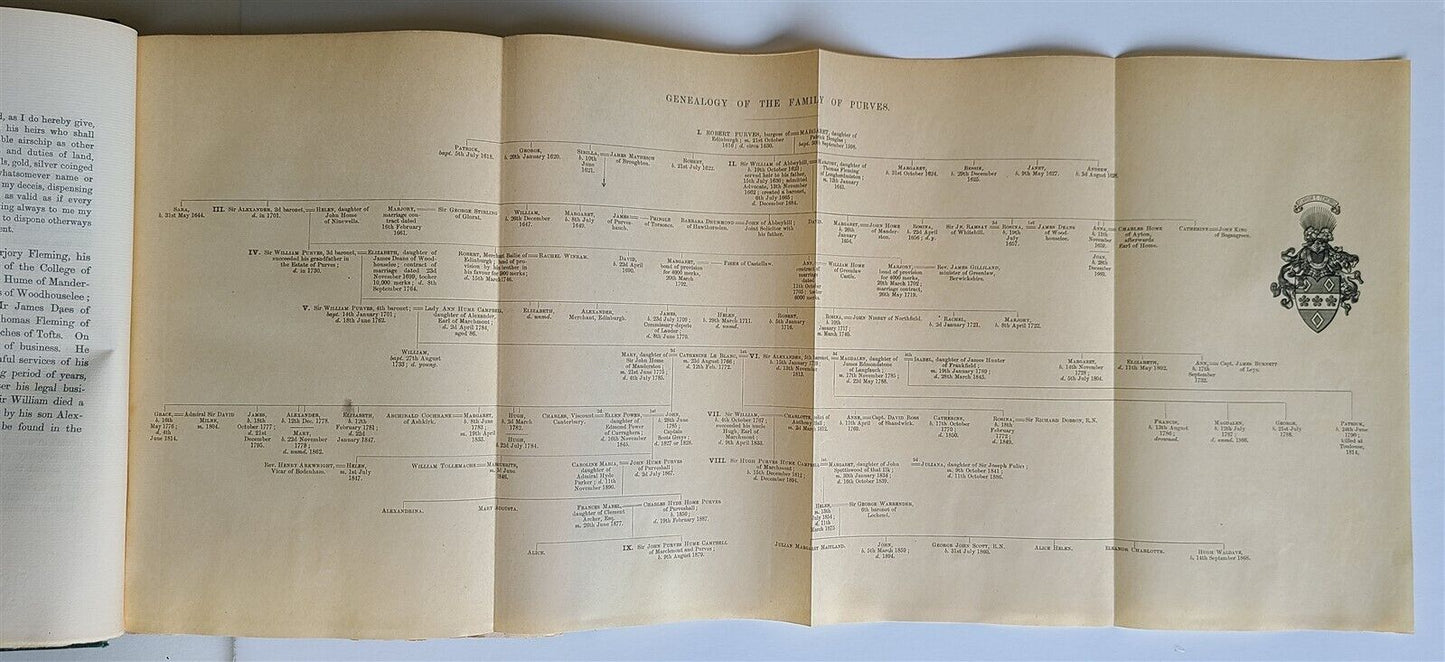 d, as I do hereby give,
his heirs who shall
ble airship as other
and duties of land,
ls, gold, silver coinged
whatsomever name or
my deceis, dispensing
as valid as if every
ing always to me my
to dispone otherways
ent.
rjory Fleming, his
of the College of
Hume of Mander-
s of Woodhouselee;
Mr James Daes of
homas Fleming of
ches of Tofts. On
of business. He
ful services of his
g period of years,
er his legal busi-
ir William died a
by his son Alex-
be found in the
GENEALOGY OF THE FAMILY OF PURVES.
I. ROBERT PURVES, burgess of
Edinburgh; m. 21st October
1616; d. circa 1630.
MARGARET, daughter of
PATRICK,
bapt. 5th July 1618.
GEORGE,
b. 20th January 1620.
SIBILLA,
b. 10th
June
1621.
JAMES MATHESON
of Broughton.
ROBERT,
b. 21st July 1622.
II. SIR WILLIAM of Abbeyhill,
b. 19th October 1623;
served heir to his father,
15th July 1636; admitted
Advocate, 13th November
1662; created a baronet,
6th July 1665;
d. December 1684.
MARGARET,
b. 31st October 1624.
BESSIE,
b. 29th December
1625.
JANET,
b. 9th May 1627.
ANDREW,
SARA,
b. 31st May 1644.
III. SIR ALEXANDER, 2d baronet,
d. in 1701.
HELEN, daughter of
John Home
of Ninewells.
MARJORY,
marriage con-
tract dated
16th February
1661.
SIR GEORGE STIRLING
of Glorat.
WILLIAM,
b. 26th December
1647.
MARGARET,
b. 8th July
1649.
JAMES
of Purves-
haugh.
PRINGLE
of Torsonce.
BARBARA DRUMMOND
of Hawthornden.
JOHN of Abbeyhill;
Joint Solicitor with
his father.
DAVID.
MARGARET,
b. 26th
January
1654.
JOHN HOME
of Mander-
ston.
ROSINA,
b. 23d April
1656; d.y.
SIR JN. RAMSAY
of Whitehill.
ROSINA,
b. 19th
July
1657.
JAMES DEANS
of Wood-
houselee.
ANNA,
b. 11th
November
1659.
CHARLES HOME
of Ayton,
afterwards
Earl of Home.
CATHERINE
JOHN KING
JOAN,
b. 28th
December
1660.
IV. SIR WILLIAM PURVES, 3d baronet,
succeeded his grandfather in
the Estate of Purves;
d. in 1730.
ELIZABETH, daughter of
James Deans of Wood-
houselee; contract of
marriage dated 23d
November 1699, tocher
10,000 merks; d. 8th
September 1764.
ROBERT, Merchant Bailie of
RACHEL WINRAM.
DAVID,
b. 23d April
1680.
MARGARET,
bond of provision
for 4000 merks,
20th March
1702.
FISHE of Castellaw.
WILLIAM HOME
of Greenlaw
Castle.
MARJORY,
bond of provision
for 4000 merks,
20th March 1702;
marriage contract,
26th May 1719.
REV. JAMES GILLILAND,
minister of Greenlaw,
Berwickshire.
V. SIR WILLIAM PURVES, 4th baronet;
bapt. 14th January 1701;
d. 18th June 1762.
LADY ANN HUME CAMPBELL,
daughter of Alexander,
Earl of Marchmont;
d. 2d April 1784,
aged 86.
ELIZABETH,
d. unmd.
ALEXANDER,
Merchant, Edinburgh.
JAMES,
b. 23d July 1709;
Commissary-depute
of Lauder;
d. 8th June 1770.
HELEN,
b. 29th March 1711.
d. unmd.
ROBERT,
b. 5th January
1716.
ROSINA,
JOHN NISBET of Northfield.
RACHEL,
b. 2d January 1721.
MARJORY,
b. 8th April 1722.
WILLIAM,
bapt. 27th August
1733; d. young.
MARY, daughter of
Sir John Home
of Manderston;
m. 21st June 1775;
d. 4th July 1785.
CATHERINE LE BLANC,
m. 23d August 1766;
d. 12th Feb. 1772.
VI. SIR ALEXANDER, 5th baronet,
MAGDALEN, daughter of
James Edmondstone
of Langfauch;
m. 17th November 1785;
d. 23d May 1788.
ISABEL, daughter of James Hunter
of Frankfield;
m. 19th January 1789;
d. 28th March 1845.
MARGARET,
b. 14th November
1728;
d. 5th July 1804.
ELIZABETH,
d. 11th May 1802.
ANN,
b. 17th
September
1732.
CAPT. JAMES BURNETT
of Leys.
GRACE,
b. 16th
May 1776;
d. 4th
June 1814.
ADMIRAL SIR DAVID
MILNE,
m. 1804.
JAMES,
b. 18th
October 1777;
d. 21st
December
1795.
ALEXANDER,
b. 12th Dec. 1778.
MARY,
b. 22d November
1778;
d. unmd. 1862.
ELIZABETH,
b. 12th
February 1781;
d. 22d
January 1847.
ARCHIBALD COCKBURNE
of Ashkirk.
MARGARET,
b. 8th June
1783;
m. 19th April
1833.
HUGH,
b. 2d March
1782.
HUGH,
b. 23d July 1784.
CHARLES, Viscount
Canterbury.
ELLEN POWER,
daughter of
Edmond Power
of Curragheen;
d. 16th November
1845.
JOHN,
b. 28th June
1785;
Captain
Scots Greys;
d. 1827 or 1828.
VII. SIR WILLIAM,
b. 4th October 1767;
succeeded his uncle
Hugh, Earl of
Marchmont
d. 9th April 1833.
CHARLOTTE,
ANNE,
b. 11th April
1769.
CAPT. DAVID ROSS
of Shandwick.
CATHERINE,
b. 17th October
1770;
d. 1850.
ROSINA,
b. 18th
February
1772;
d. 1849.
SIR RICHARD DOBSON, R.N.
FRANCIS,
b. 13th August
1786;
drowned.
MAGDALEN,
b. 12th July
1787;
d. unmd. 1866.
GEORGE,
b. 21st July
1788.
PATRICK,
b. 24th June
1790;
killed at
Toulouse,
1814.
REV. HENRY ARKWRIGHT,
Vicar of Bodenham.
HELEN,
m. 1st July
1847.
WILLIAM TOLLEMACHE
MARGUERITE,
CAROLINE MARIA,
daughter of
Admiral Hyde
Parker; d. 11th
November 1896.
JOHN HUME PURVES
of Purveshall;
d. 2d July 1867.
VIII. SIR HUGH PURVES HUME CAMPBELL
of Marchmont;
b. 15th December 1812;
d. December 1894.
MARGARET, daughter of John
Spottiswood of that Ilk;
m. 30th January 1834;
d. 16th October 1839.
JULIANA, daughter of Sir Joseph Fuller;
m. 9th October 1841;
d. 11th October 1886.
ALEXANDRINA.
MARY AUGUSTA.
FRANCES MABEL,
daughter of Clement
Archer, Esq.
m. 26th June 1877.
CHARLES HYDE HOME PURVES
of Purveshall;
b. 1850;
d. 19th February 1887.
HELEN,
SIR GEORGE WARRENDER,
6th baronet of
Lochend.
ALICE.
IX. SIR JOHN PURVES HUME CAMPBELL
of Marchmont and Purves;
b. 9th August 1879.
JULIAN MARGARET MAITLAND.
JOHN,
b. 5th March 1859;
d. 1894.
GEORGE JOHN SCOTT, R.N.
b. 31st July 1860.
ALICE HELEN.
ELEANOR CHARLOTTE.
HUGH WALDAVE,
b. 14th September 1868.